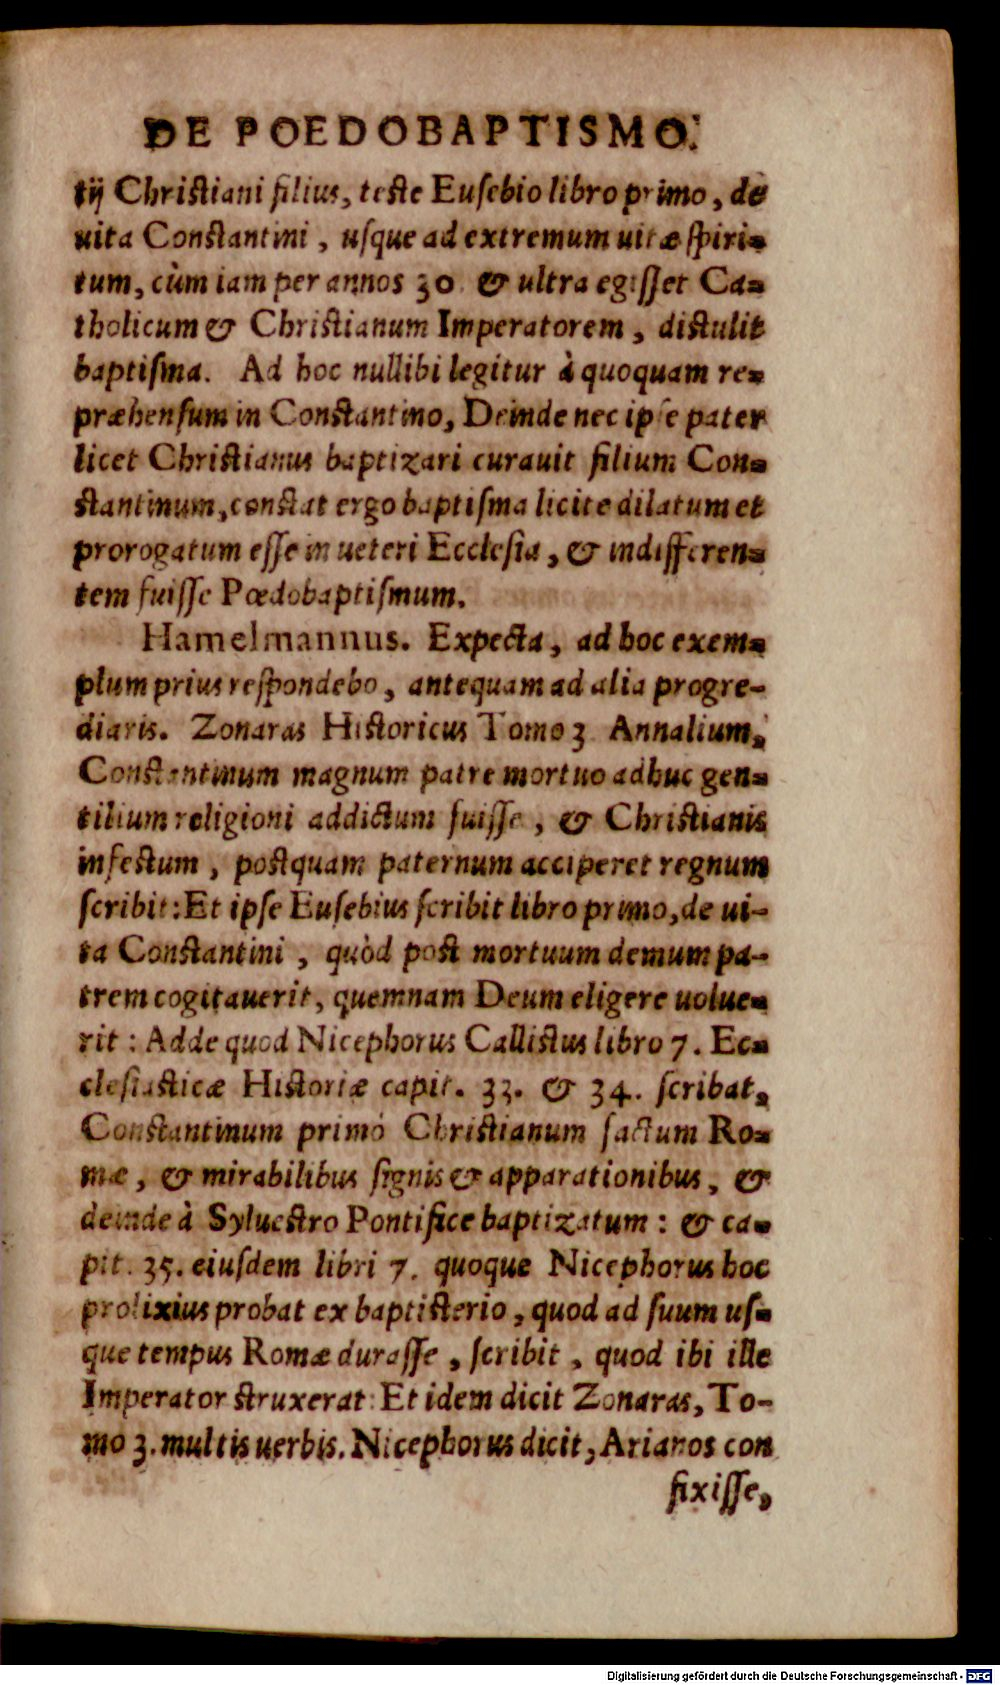 DE POEDOBAPTISMO.
tij Christiani filius, teste Eusebio libro primo, de
uita Constantini, usque ad extremum uitæ spiri-
tum, cùm iam per annos 30. & ultra egisset Ca-
tholicum & Christianum Imperatorem, distulit
baptisma. Ad hoc nullibi legitur à quoquam re-
præhensum in Constantino, Deinde nec ipse pater
licet Christianus baptizari curauit filium Con-
stantinum, constat ergo baptisma licite dilatum et
prorogatum esse in ueteri Ecclesia, & indifferen-
tem fuisse Pœdobaptismum.
Hamelmannus. Expecta, ad hoc exem-
plum prius respondebo, antequam ad alia progre-
diaris. Zonaras Historicus Tomo 3 Annalium,
Constantinum magnum patre mortuo adhuc gen-
tilium religioni addictum fuisse, & Christianis
infestum, postquam paternum acciperet regnum
scribit: Et ipse Eusebius scribit libro primo, de ui-
ta Constantini, quòd post mortuum demum pa-
trem cogitauerit, quemnam Deum eligere uolue-
rit: Adde quod Nicephorus Callistus libro 7. Ec-
clesiasticæ Historiæ capit. 33. & 34. scribat,
Constantinum primò Christianum factum Ro-
mæ, & mirabilibus signis & apparationibus, &
deinde à Syluestro Pontifice baptizatum: & ca-
pit. 35. eiusdem libri 7. quoque Nicephorus hoc
prolixius probat ex baptisterio, quod ad suum us-
que tempus Romæ durasse, scribit, quod ibi ille
Imperator struxerat: Et idem dicit Zonaras, To-
mo 3. multis uerbis. Nicephorus dicit, Arianos con
fixisse,
Digitalisierung gefördert durch die Deutsche Forschungsgemeinschaft - DFG